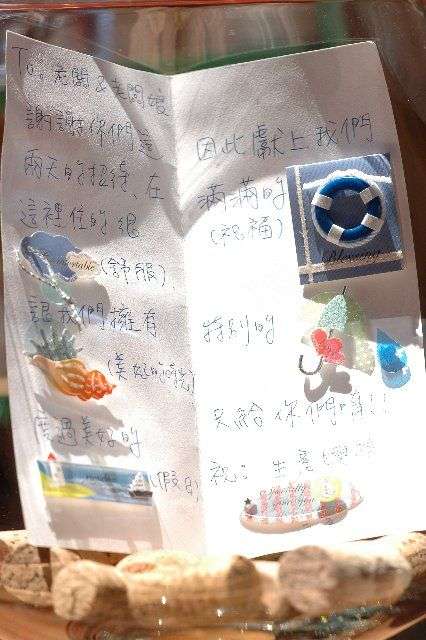 To: 老闆 & 老闆娘
謝謝你們這
兩天的招待、在
這裡住的很
(舒服)、
讓我們擁有
(美好的時光)
度過美好的
(假日)
因此獻上我們
滿滿的
(祝福)
Blessing
特別的
只給你們唷!!
祝: 生意